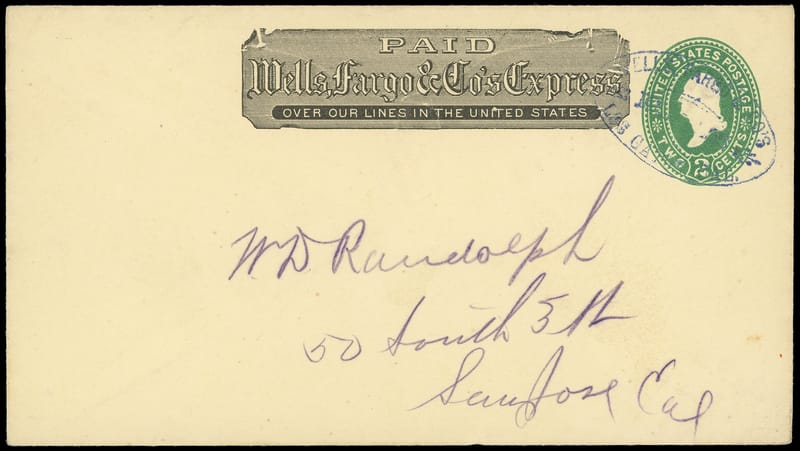 PAID
Wells, Fargo & Co's Express
OVER OUR LINES IN THE UNITED STATES
UNITED STATES POSTAGE
TWO 2 CENTS
W D Randolph
50 South 5th
San Jose Cal